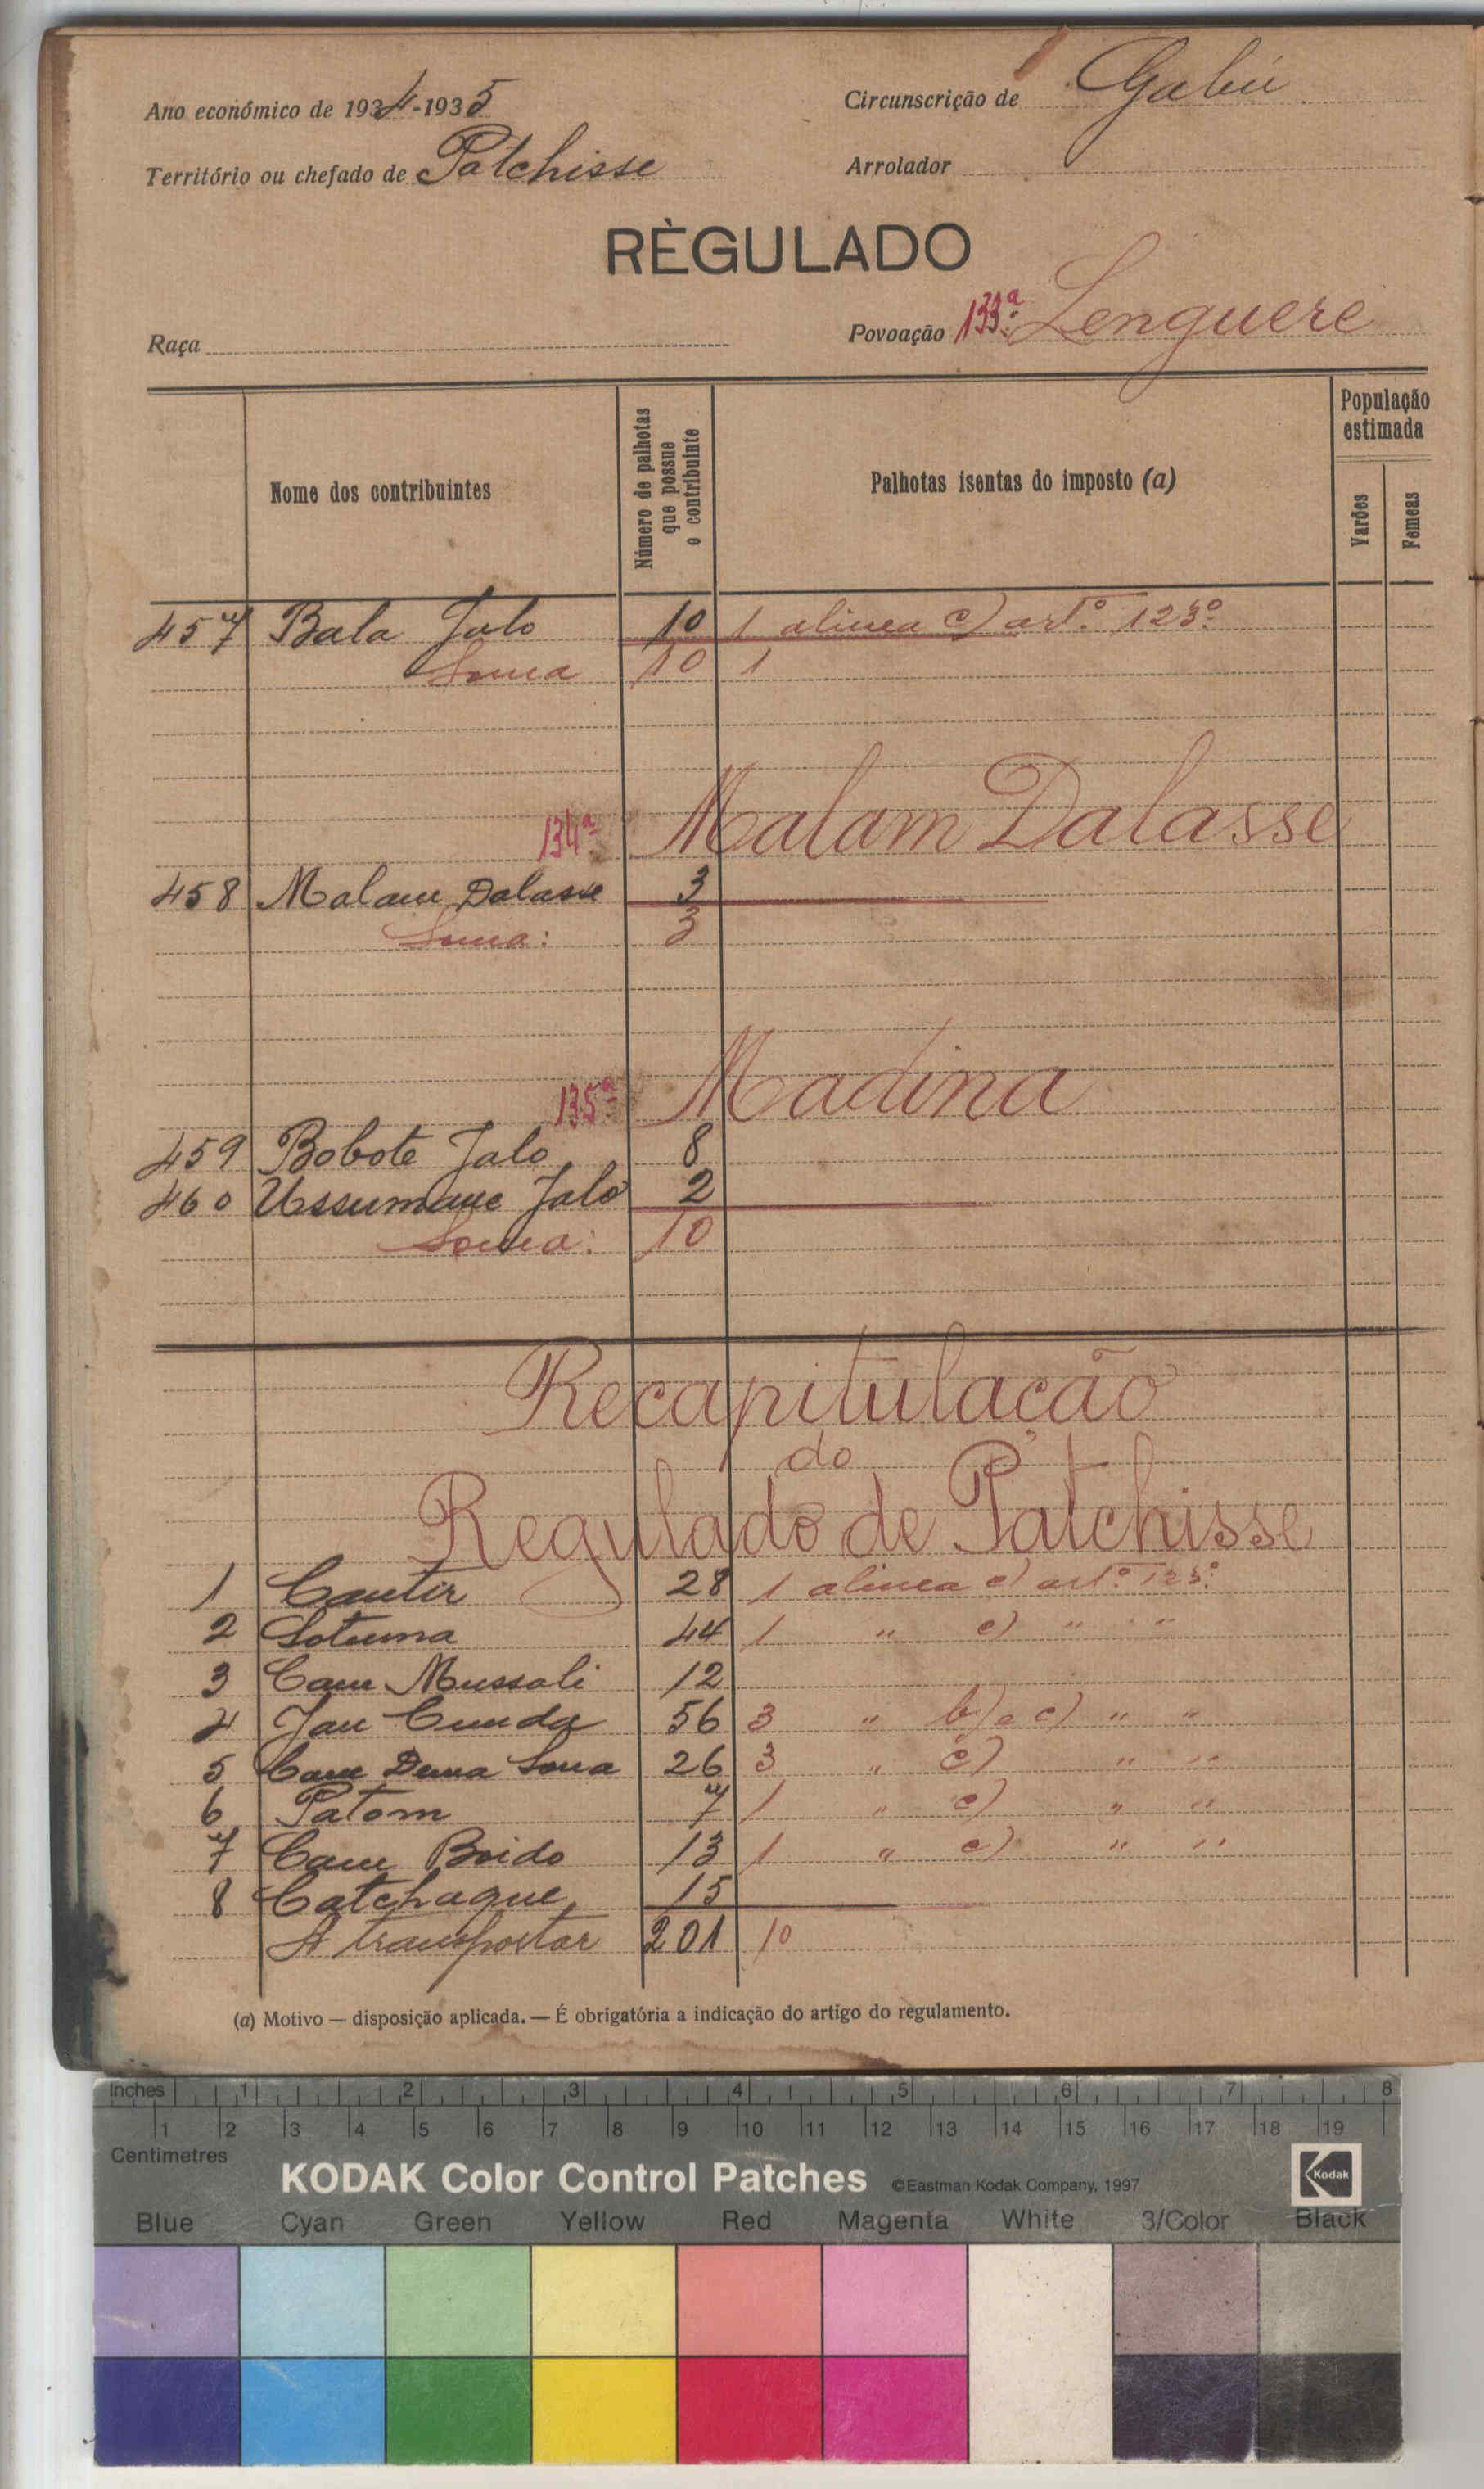 Ano económico de 1934-1935
Circunscrição de Gabú
Território ou chefado de Patchisse
Arrolador
RÈGULADO
Raça
Povoação 133ª Lenguere
Nome dos contribuintes
Número de palhotas que possue o contribuinte
Palhotas isentas do imposto (a)
População estimada
Varões
Femeas
457 Bala Jalo 10 1 alinea c) artº 123º
Soma 10 1
134ª Malam Dalasse
458 Malam Dalasse 3
Soma: 3
135ª Madina
459 Bobote Jalo 8
460 Ussumane Jalo 2
Soma: 10
Recapitulação
do
Regulado de Patchisse
1 Cantir 28 1 alinea c) artº 123º
2 Sotuma 44 1 " c) " "
3 Cam Mussali 12
4 Jau Cunda 56 3 " b) e c) " "
5 Cam Demа Soua 26 3 " c) " "
6 Patom 7 1 " c) " "
7 Cam Boido 13 1 " c) " "
8 Catchaque 15
A transportar 201 10
(a) Motivo — disposição aplicada. — É obrigatória a indicação do artigo do regulamento.
Inches 1 2 3 4 5 6 7 8
1 2 3 4 5 6 7 8 9 10 11 12 13 14 15 16 17 18 19
Centimetres
KODAK Color Control Patches ©Eastman Kodak Company, 1997 Kodak
Blue Cyan Green Yellow Red Magenta White 3/Color Black